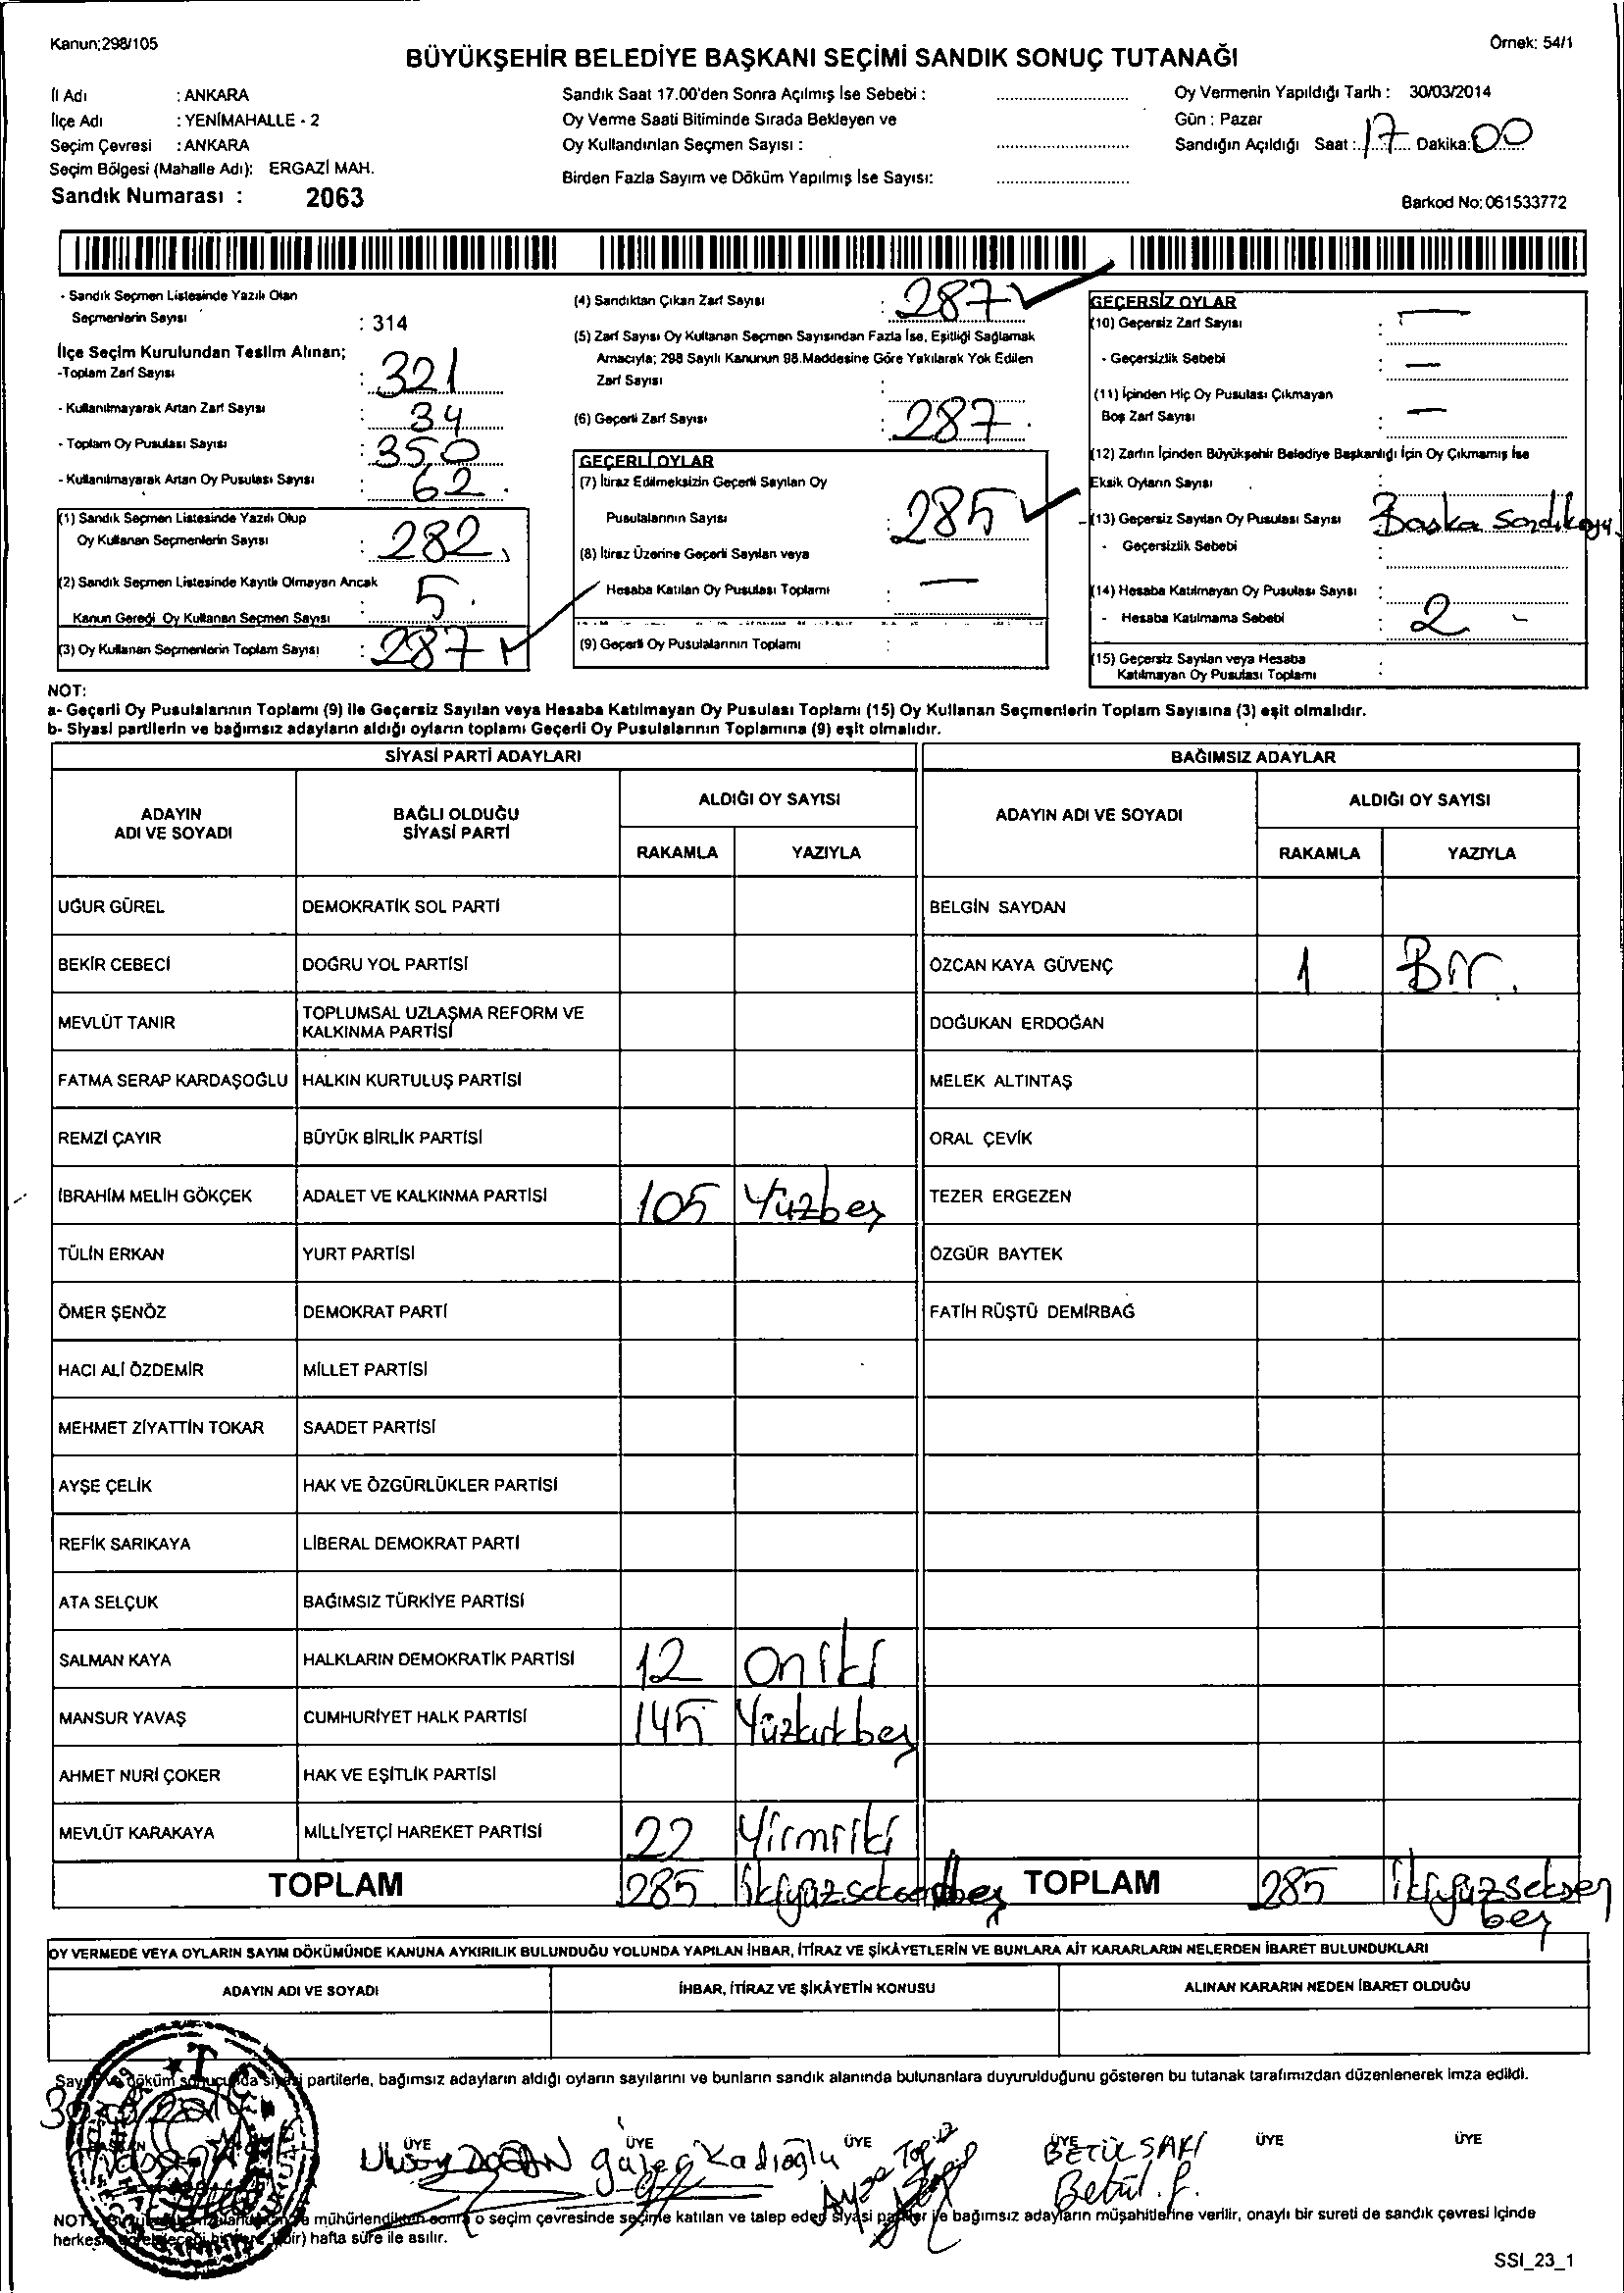 Kanun;298/105
Örnek: 54/1
BÜYÜKŞEHİR BELEDİYE BAŞKANI SEÇİMİ SANDIK SONUÇ TUTANAĞI
İl Adı : ANKARA
İlçe Adı : YENİMAHALLE - 2
Seçim Çevresi : ANKARA
Seçim Bölgesi (Mahalle Adı): ERGAZİ MAH.
Sandık Numarası : 2063
Sandık Saat 17.00'den Sonra Açılmış İse Sebebi :
Oy Verme Saati Bitiminde Sırada Bekleyen ve
Oy Kullandırılan Seçmen Sayısı :
Birden Fazla Sayım ve Döküm Yapılmış İse Sayısı:
Oy Vermenin Yapıldığı Tarih : 30/03/2014
Gün : Pazar
Sandığın Açıldığı Saat : 17 Dakika: 00
Barkod No: 061533772
- Sandık Seçmen Listesinde Yazılı Olan
Seçmenlerin Sayısı : 314
İlçe Seçim Kurulundan Teslim Alınan;
-Toplam Zarf Sayısı : 321
- Kullanılmayarak Artan Zarf Sayısı : 34
- Toplam Oy Pusulası Sayısı : 350
- Kullanılmayarak Artan Oy Pusulası Sayısı : 62
(1) Sandık Seçmen Listesinde Yazılı Olup
Oy Kullanan Seçmenlerin Sayısı : 282
(2) Sandık Seçmen Listesinde Kayıtlı Olmayan Ancak
Kanun Gereği Oy Kullanan Seçmen Sayısı : 5
(3) Oy Kullanan Seçmenlerin Toplam Sayısı : 287
(4) Sandıktan Çıkan Zarf Sayısı : 287
(5) Zarf Sayısı Oy Kullanan Seçmen Sayısından Fazla İse, Eşitliği Sağlamak
Amacıyla; 298 Sayılı Kanunun 98.Maddesine Göre Yakılarak Yok Edilen
Zarf Sayısı :
(6) Geçerli Zarf Sayısı : 287
GEÇERLİ OYLAR
(7) İtiraz Edilmeksizin Geçerli Sayılan Oy
Pusulalarının Sayısı : 285
(8) İtiraz Üzerine Geçerli Sayılan veya
Hesaba Katılan Oy Pusulası Toplamı : —
(9) Geçerli Oy Pusulalarının Toplamı :
GEÇERSİZ OYLAR
(10) Geçersiz Zarf Sayısı : —
- Geçersizlik Sebebi : —
(11) İçinden Hiç Oy Pusulası Çıkmayan
Boş Zarf Sayısı : —
(12) Zarfın İçinden Büyükşehir Belediye Başkanlığı İçin Oy Çıkmamış İse
Eksik Oyların Sayısı
(13) Geçersiz Sayılan Oy Pusulası Sayısı : Başka
- Geçersizlik Sebebi :
(14) Hesaba Katılmayan Oy Pusulası Sayısı :
- Hesaba Katılmama Sebebi : 2 -
(15) Geçersiz Sayılan veya Hesaba
Katılmayan Oy Pusulası Toplamı :
NOT:
a- Geçerli Oy Pusulalarının Toplamı (9) ile Geçersiz Sayılan veya Hesaba Katılmayan Oy Pusulası Toplamı (15) Oy Kullanan Seçmenlerin Toplam Sayısına (3) eşit olmalıdır.
b- Siyasi partilerin ve bağımsız adayların aldığı oyların toplamı Geçerli Oy Pusulalarının Toplamına (9) eşit olmalıdır.
SİYASİ PARTİ ADAYLARI
BAĞIMSIZ ADAYLAR
ADAYIN ADI VE SOYADI
BAĞLI OLDUĞU SİYASİ PARTİ
ALDIĞI OY SAYISI
RAKAMLA YAZIYLA
ADAYIN ADI VE SOYADI
ALDIĞI OY SAYISI
RAKAMLA YAZIYLA
UĞUR GÜREL DEMOKRATİK SOL PARTİ BELGİN SAYDAN
BEKİR CEBECİ DOĞRU YOL PARTİSİ ÖZCAN KAYA GÜVENÇ 1 Bir.
MEVLÜT TANIR TOPLUMSAL UZLAŞMA REFORM VE KALKINMA PARTİSİ DOĞUKAN ERDOĞAN
FATMA SERAP KARDAŞOĞLU HALKIN KURTULUŞ PARTİSİ MELEK ALTINTAŞ
REMZİ ÇAYIR BÜYÜK BİRLİK PARTİSİ ORAL ÇEVİK
İBRAHİM MELİH GÖKÇEK ADALET VE KALKINMA PARTİSİ 105 Yüzbeş TEZER ERGEZEN
TÜLİN ERKAN YURT PARTİSİ ÖZGÜR BAYTEK
ÖMER ŞENÖZ DEMOKRAT PARTİ FATİH RÜŞTÜ DEMİRBAĞ
HACI ALİ ÖZDEMİR MİLLET PARTİSİ
MEHMET ZİYATTİN TOKAR SAADET PARTİSİ
AYŞE ÇELİK HAK VE ÖZGÜRLÜKLER PARTİSİ
REFİK SARIKAYA LİBERAL DEMOKRAT PARTİ
ATA SELÇUK BAĞIMSIZ TÜRKİYE PARTİSİ
SALMAN KAYA HALKLARIN DEMOKRATİK PARTİSİ 12 oniki
MANSUR YAVAŞ CUMHURİYET HALK PARTİSİ 145 Yüzkırkbeş
AHMET NURİ ÇOKER HAK VE EŞİTLİK PARTİSİ
MEVLÜT KARAKAYA MİLLİYETÇİ HAREKET PARTİSİ 22 Yirmiiki
TOPLAM 285 ikiyüzseksenbeş TOPLAM 285 ikiyüzseksen
beş
OY VERMEDE VEYA OYLARIN SAYIM DÖKÜMÜNDE KANUNA AYKIRILIK BULUNDUĞU YOLUNDA YAPILAN İHBAR, İTİRAZ VE ŞİKÂYETLERİN VE BUNLARA AİT KARARLARIN NELERDEN İBARET BULUNDUKLARI
ADAYIN ADI VE SOYADI İHBAR, İTİRAZ VE ŞİKÂYETİN KONUSU ALINAN KARARIN NEDEN İBARET OLDUĞU
partilerle, bağımsız adayların aldığı oyların sayılarını ve bunların sandık alanında bulunanlara duyurulduğunu gösteren bu tutanak tarafımızdan düzenlenerek imza edildi.
ÜYE ÜYE ÜYE ÜYE ÜYE ÜYE
DOĞAN Kadıoğlu BETÜL SAKI
Betül.
NOT: mühürlendikten sonra o seçim çevresinde seçime katılan ve talep eden siyasi partiler ile bağımsız adayların müşahitlerine verilir, onaylı bir sureti de sandık çevresi içinde
(bir) hafta süre ile asılır.
SSI_23_1